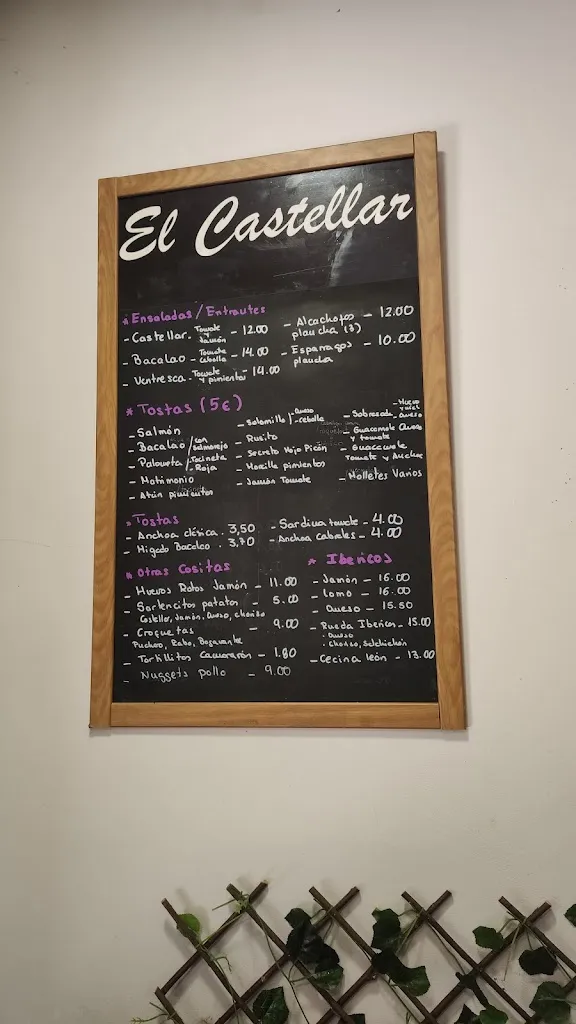 El Castellar
* Ensaladas/Entrantes
- Castellar. Tomate Jamón - 12.00
- Bacalao - Tomate cebolla - 14.00
- Ventresca - Tomate y pimientos - 14.00
- Alcachofas plancha (3) - 12.00
- Esparragos plancha - 10.00
* Tostas (5€)
- Salmón
- Bacalao / con salmorejo
- Paloueta / Tocineta Roja
- Matimonio
- Atún pimientos
- Solomillo / - Queso - cebolla
- Rusita
- Secreto Mojo Picón
- Morcilla pimientos
- Jamón Tomate
- Sobrasada - Huevo y miel - Queso
- Guacamole Queso y tomate
- Guacamole Tomate y Anchoa
- Molletes Varios
* Tostas
- Anchoa clásica. 3,50
- Higado Bacalao. 3,70
- Sardina tomate - 4.00
- Anchoa cabrales - 4.00
* Otras Cositas
- Huevos Rotos Jamón - 11.00
- Sartencitas patatas - 5.00
Castellar, Jamón, Queso, chorizo
- Croquetas - 9.00
Puchero, Rabo, Bogavante
- Tortillitas Camararón - 1.80
- Nuggets pollo - 9.00
* Ibericos
- Jamón - 16.00
- Lomo - 16.00
- Queso - 15.50
- Rueda Ibericos - 15.00
. Queso
. Chorizo, Salchichón
- Cecina león - 13.00